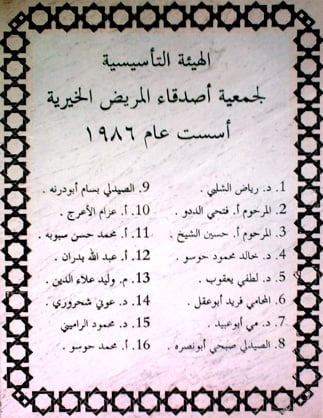 الهيئة التأسيسية
لجمعية أصدقاء المريض الخيرية
أسست عام ١٩٨٦
1. د. رياض الشلبي .
2. المرحوم أ. فتحي الددو .
3. المرحوم أ. حسين الشيخ .
4. د. خالد محمود حوسو .
5. د. لطفي يعقوب .
6. المحامي فريد أبوعقل .
7. د. مي أبوعبيد .
8. الصيدلي صبحي أبونصره .
9. الصيدلي بسام أبودرنه .
10. أ. عزام الأعرج .
11. أ. محمد حسن سبوبه .
12. أ. عبد الله بدران .
13. م. وليد علاء الدين .
14. د. عوني شحروري .
15. د. محمود الراميني
16. أ. محمد حوسو .